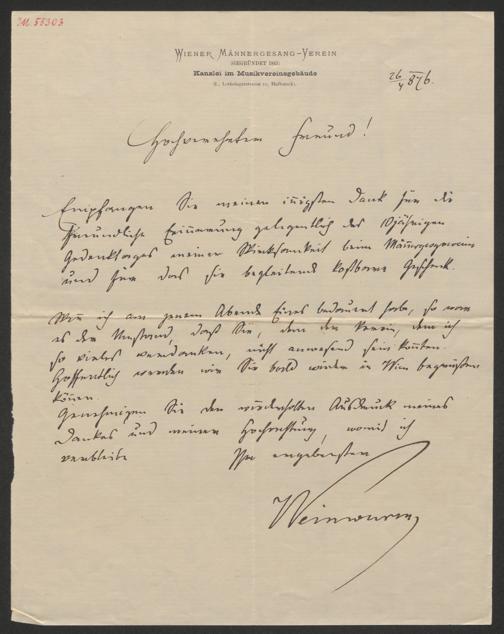 M. 58303
WIENER MÄNNERGESANG-VEREIN
(GEGRÜNDET 1843)
Kanzlei im Musikvereinsgebäude
26/4 876.
Hochverehrter Freund!
Empfangen Sie meinen innigsten Dank für die
freundliche Erinnerung gelegentlich des 10jährigen
Gedenktages meiner Wirksamkeit beim Männergesangverein
und für das sie begleitende kostbare Geschenk.
Was ich an jenem Abende Eines bedauert habe, so war
es der Umstand, daß Sie, dem der Verein, dem ich
so vieles verdanken, nicht anwesend sein konnten.
Hoffentlich werden wir Sie bald wieder in Wien begrüßen
können.
Genehmigen Sie den wiederholten Ausdruck meines
Dankes und meiner Hochachtung, womit ich
verbleibe Ihr ergebenster
Weinwurm